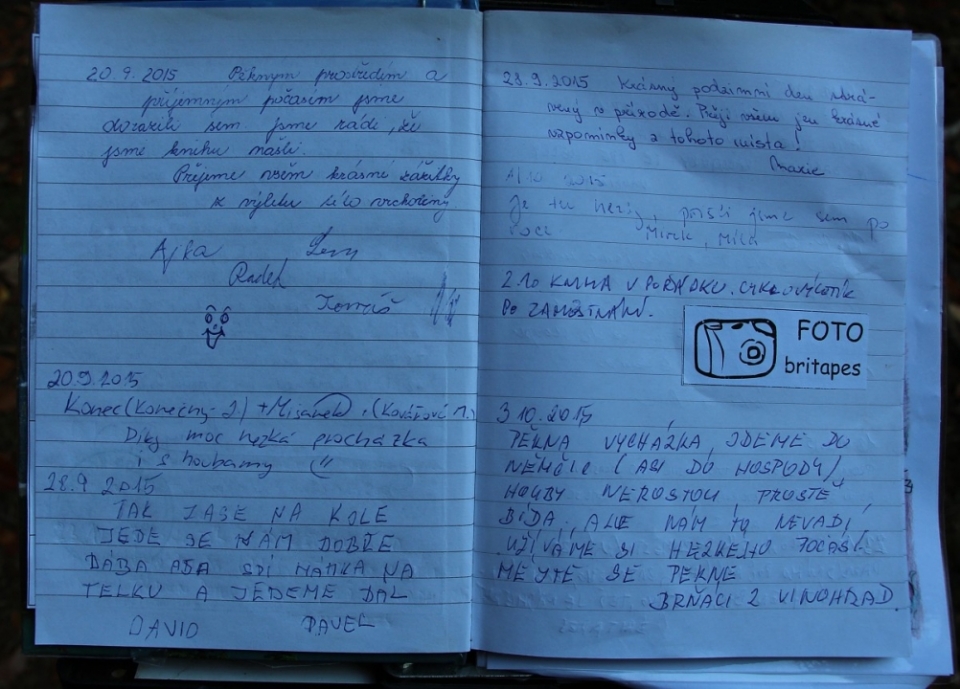 20.9.2015 Pěkným prostředím a
příjemným počasím jsme
dorazili sem. jsme rádi, že
jsme knihu našli.
Přejeme všem krásné zážitky
z výletu této vrchoviny
Ajka
Radek
Tomáš
20.9.2015
Konec (Konečný J) + Mišánek, (Kovářová M.)
Díky moc hezká procházka
i s houbamy
28.9. 2015
TAK ZASE NA KOLE
JEDE SE NÁM DOBŘE
BÁBA
TELKU A JEDEME DÁL
DAVID PAVEL
28.9.2015 Krásný podzimní den strá-
vený v přírodě. Přeji všem jen krásné
vzpomínky z tohoto místa!
10 2015
Je tu hezky, prišli jsme sem po
roce Mirek, Míla
2.10 KNIHA V POŘÁDKU. CYKLOVÝLETNÍK
PO ZAMĚSTNÁNÍ.
FOTO
britapes
3 10.2015
PĚKNÁ VYCHÁZKA, JDEME DO
NĚMČIC (ASI DO HOSPODY)
HOUBY NEROSTOU PROSTĚ
BÍDA, ALE NÁM TO NEVADÍ,
UŽÍVÁME SI HEZKÉHO POČASÍ.
MĚJTE SE PĚKNĚ
BRŇÁCI Z VINOHRAD.